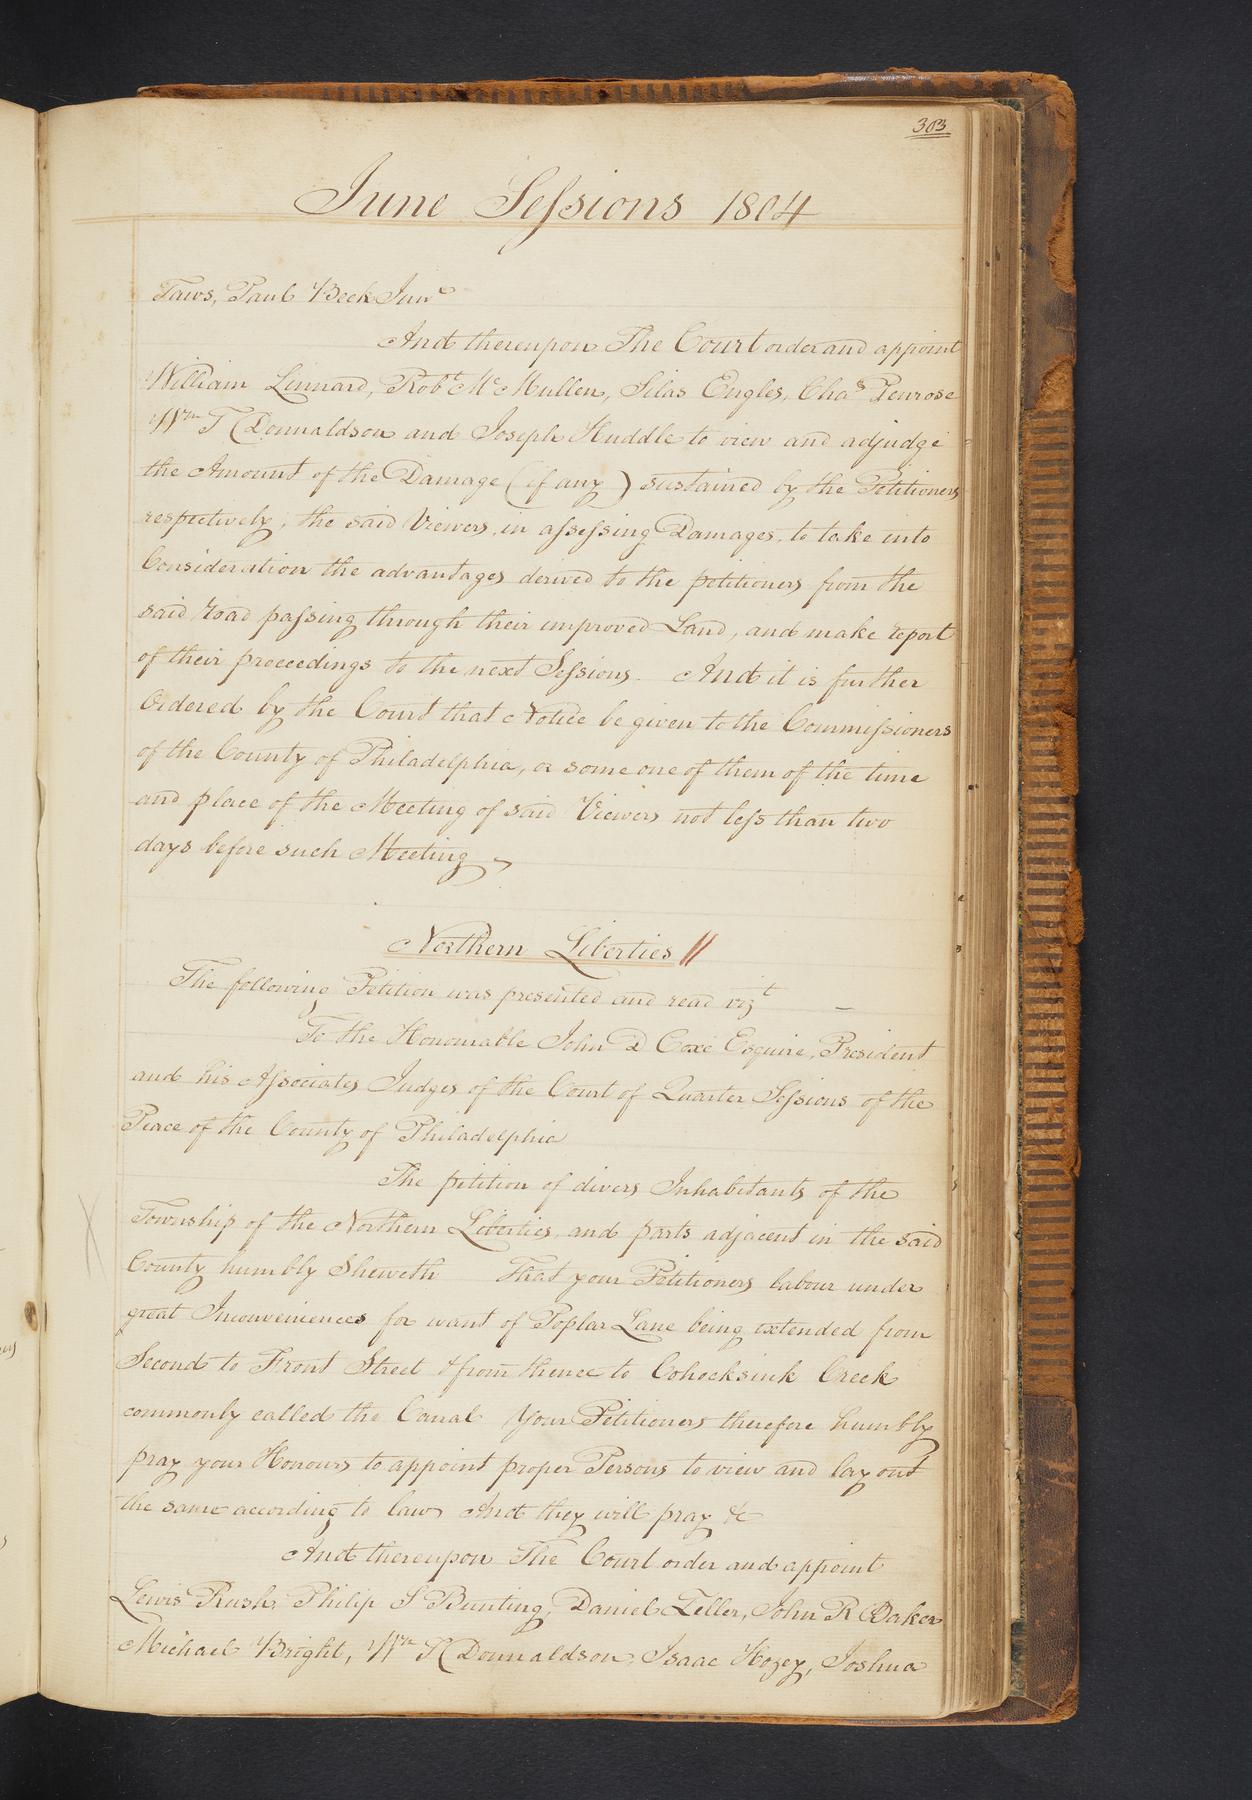 303
June Sessions 1804
Taws, Paul Beck Junr
And thereupon The Court order and appoint
William Linnard, Robt McMullen, Silas Engles, Chas Penrose
Wm T Donnaldson and Joseph Huddle to view and adjudge
the Amount of the Damage (if any) sustained by the Petitioners
respectively, the said Viewers, in assessing Damages, to take into
Consideration the advantages derived to the petitioners from the
said road passing through their improved Land, and make report
of their proceedings to the next Sessions. And it is further
Ordered by the Court that Notice be given to the Commissioners
of the County of Philadelphia, or some one of them of the time
and place of the Meeting of said Viewers not less than two
days before such Meeting
Northern Liberties //
The following Petition was presented and read vizt —
To the Honourable John D Coxe Esquire, President
and his Associates Judges of the Court of Quarter Sessions of the
Peace of the County of Philadelphia
The petition of divers Inhabitants of the
Township of the Northern Liberties, and parts adjacent in the said
County humbly Sheweth That your Petitioners labour under
great Inconveniences for want of Poplar Lane being extended from
Second to Front Street & from thence to Cohocksink Creek
commonly called the Canal Your Petitioners therefore humbly
pray your Honours to appoint proper Persons to view and lay out
the same according to law And they will pray &c
And thereupon The Court order and appoint
Lewis Rush, Philip S Bunting, Daniel Zeller, John R Baker
Michael Bright, Wm T Donnaldson, Isaac Hozey, Joshua